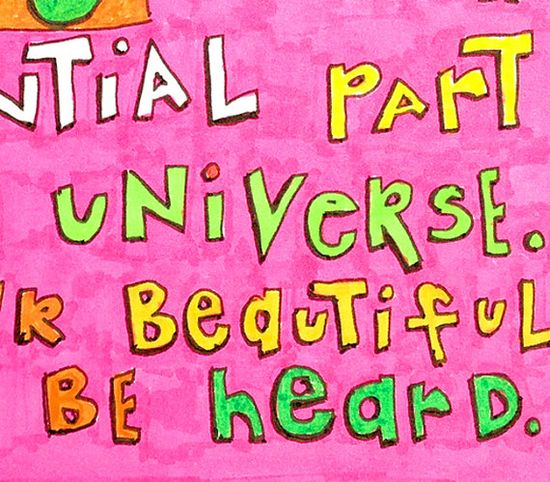 NTiAL PArT
UNiVeRSE.
R BeauTifuL
BE heard.